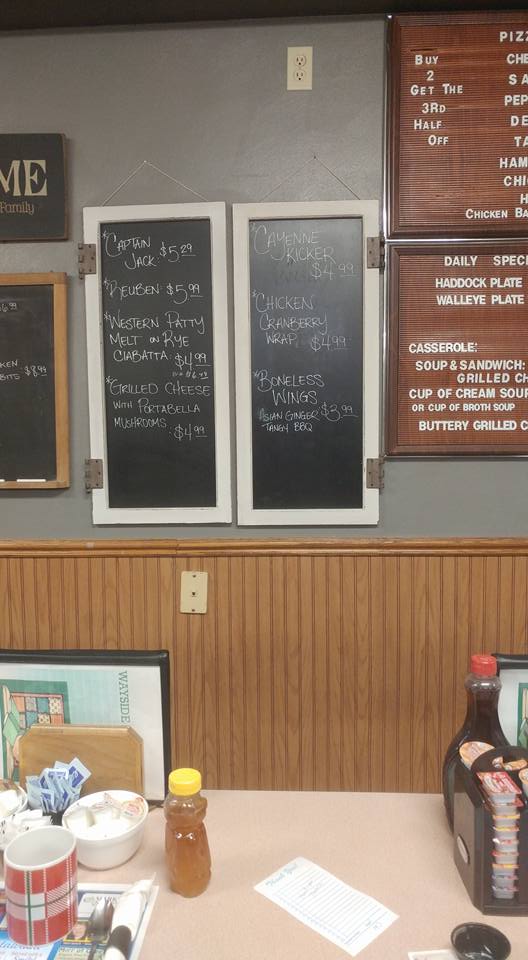 ME
Family
6.99
KEN
BITS $8.99
*CAPTAIN
JACK: $5.29
*REUBEN: $5.99
*WESTERN PATTY
MELT ON RYE
CIABATTA: $4.99
*GRILLED CHEESE
WITH PORTABELLA
MUSHROOMS: $4.99
*CAYENNE
KICKER
$4.99
*CHICKEN
CRANBERRY
WRAP $4.99
*BONELESS
WINGS
ASIAN GINGER $3.99
TANGY BBQ
BUY
2
GET THE
3RD
HALF
OFF
PIZZ
CHE
SA
PEP
DE
TA
HAM
CHIC
H
CHICKEN BA
DAILY SPECI
HADDOCK PLATE
WALLEYE PLATE
CASSEROLE:
SOUP & SANDWICH:
GRILLED CH
CUP OF CREAM SOUP
OR CUP OF BROTH SOUP
BUTTERY GRILLED C
WAYSIDE
Thank You!